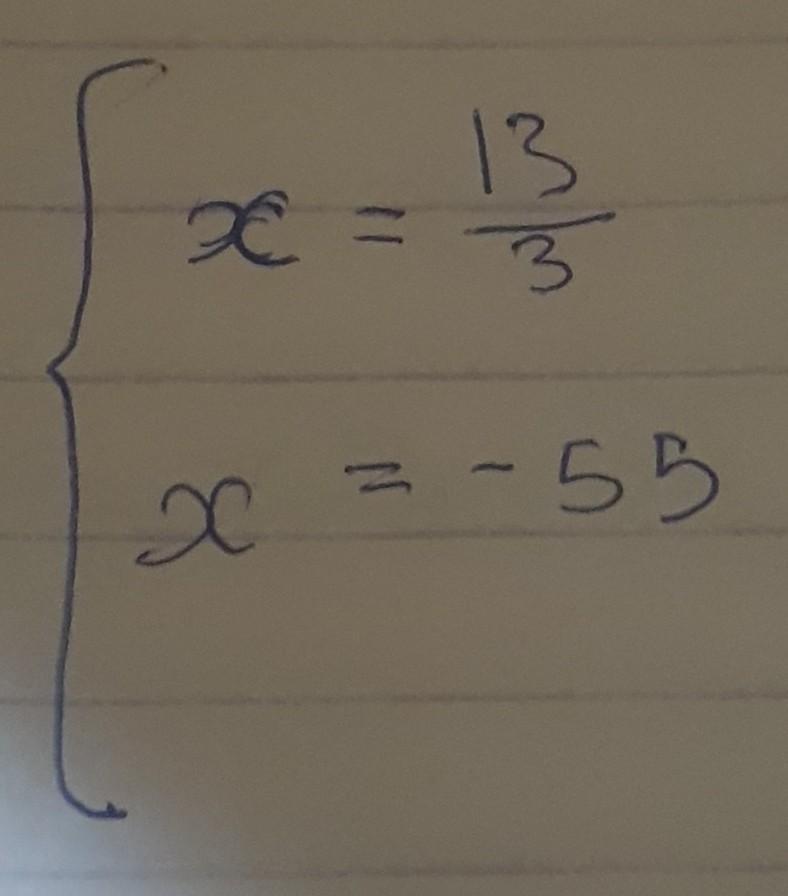 x = 13/3
x = -55